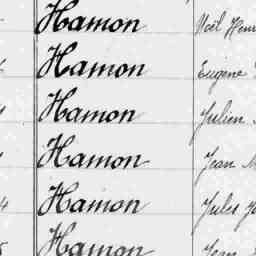 Hamon Noël Henri
Hamon Eugène
Hamon Julien
Hamon Jean M
4 Hamon Jules
Hamon Jean